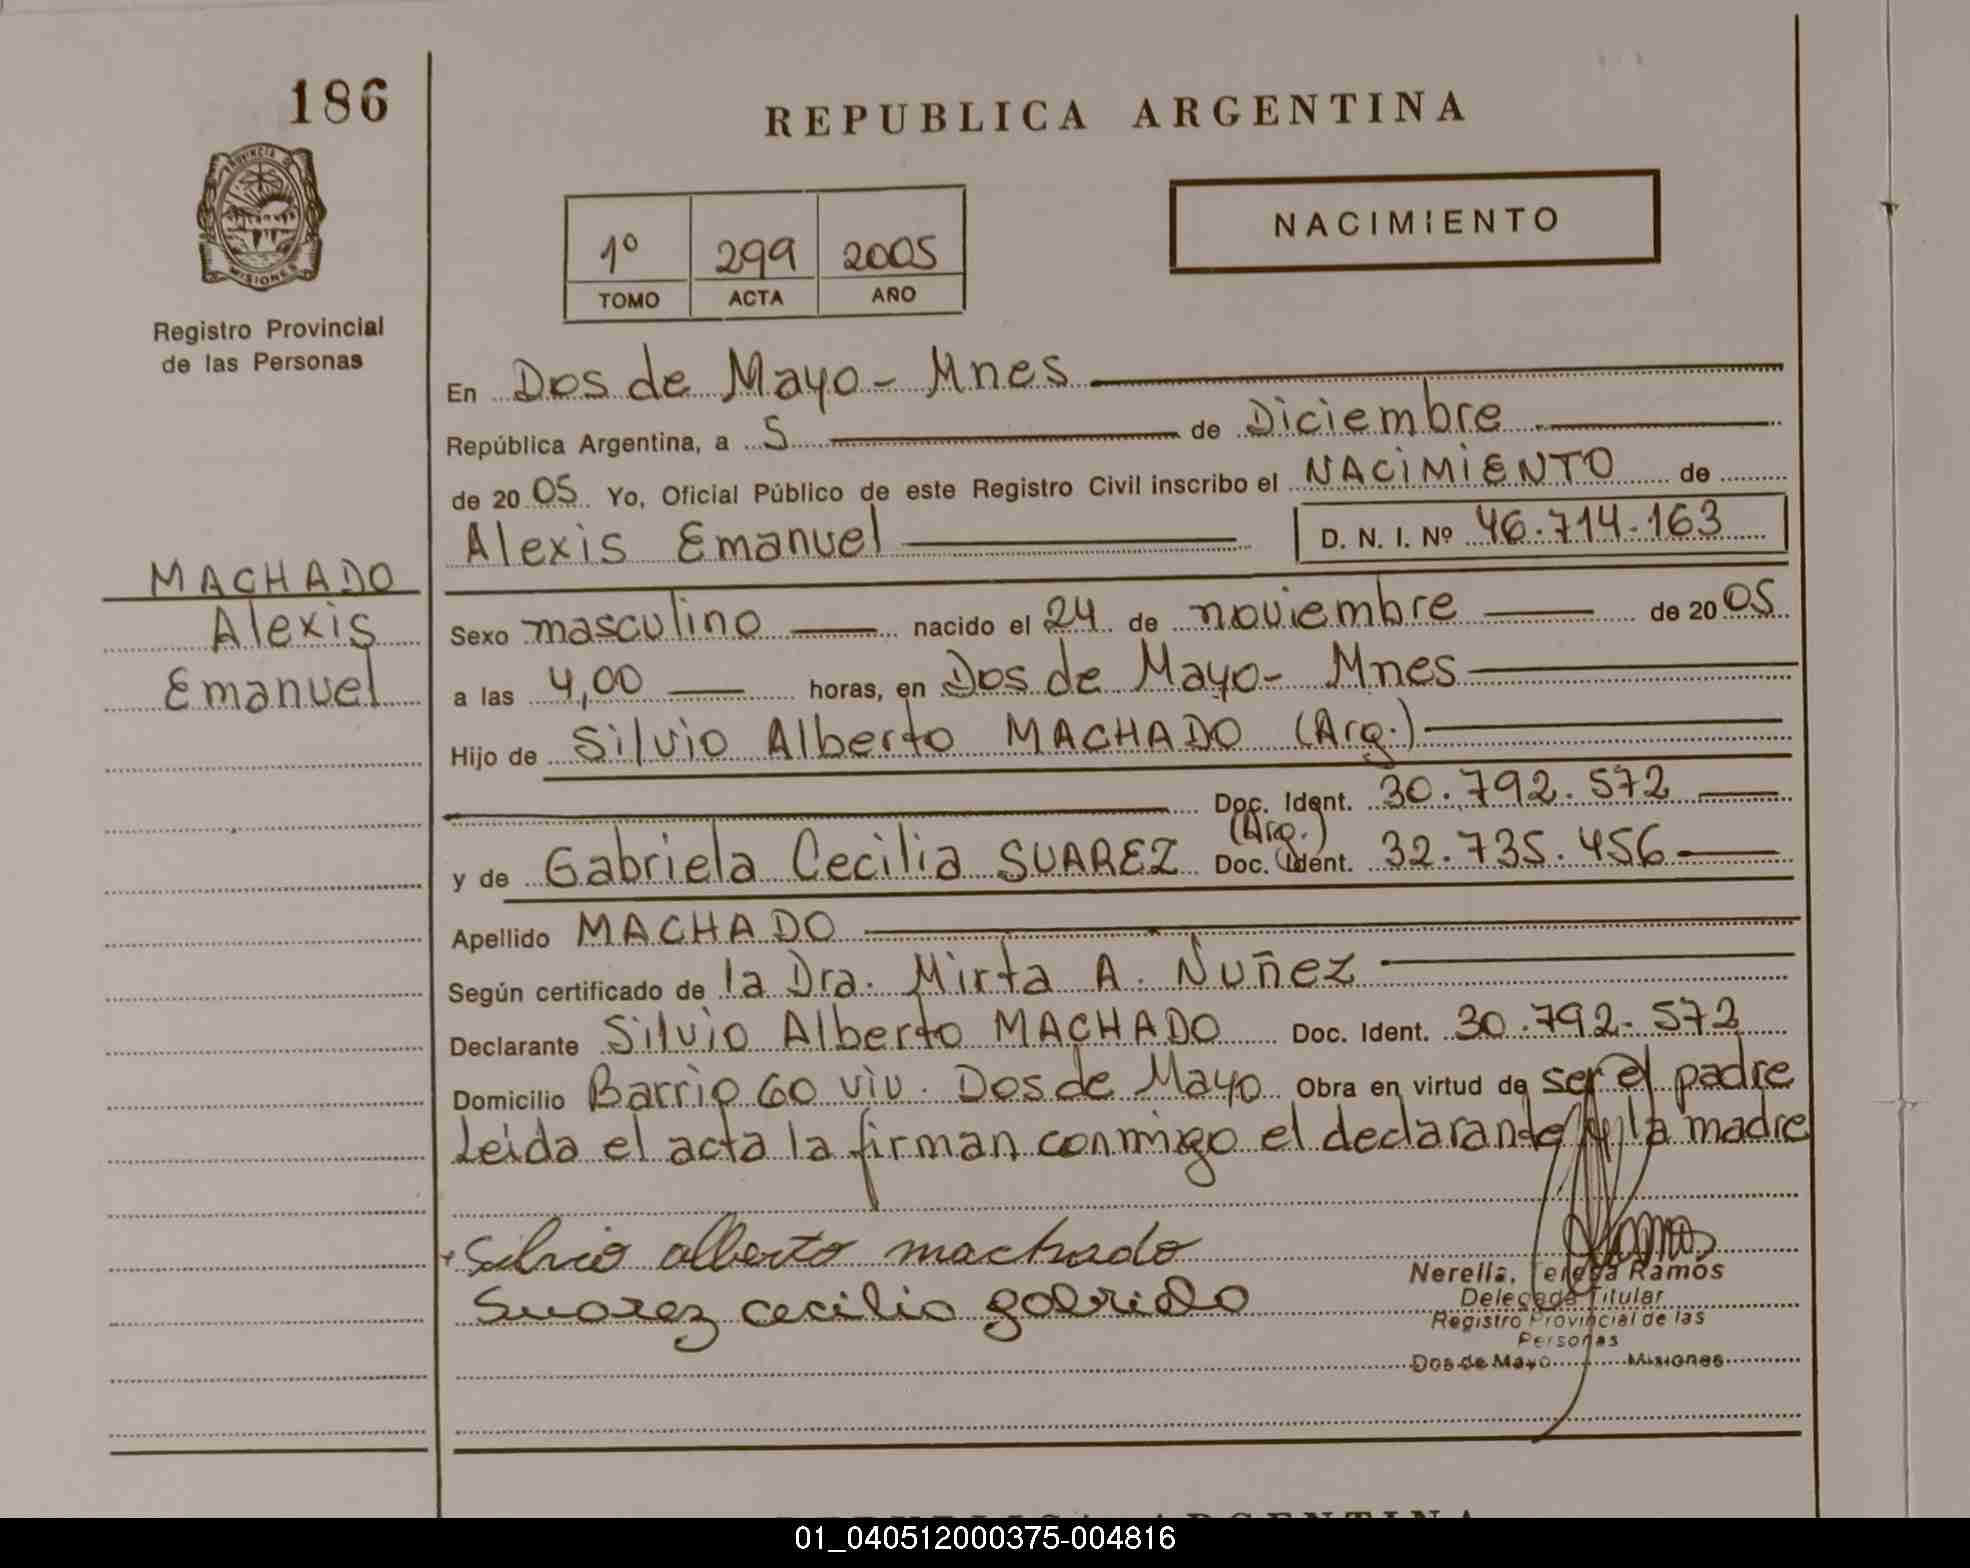 186
REPUBLICA ARGENTINA
PROVINCIA DE
MISIONES
NACIMIENTO
1º 299 2005
TOMO ACTA AÑO
Registro Provincial
de las Personas
En Dos de Mayo - Mnes
República Argentina, a 5 de Diciembre
de 2005 Yo, Oficial Público de este Registro Civil inscribo el NACIMIENTO de
Alexis Emanuel D. N. I. Nº 46.714.163
MACHADO
Alexis
Emanuel
Sexo masculino nacido el 24 de noviembre de 2005
a las 4,00 horas, en Dos de Mayo - Mnes
Hijo de Silvio Alberto MACHADO (Arg.)
Doc. Ident. 30.792.572
(Arg.)
y de Gabriela Cecilia SUAREZ Doc. Ident. 32.735.456
Apellido MACHADO
Según certificado de la Dra. Mirta A. Nuñez
Declarante Silvio Alberto MACHADO Doc. Ident. 30.792.572
Domicilio Barrio 60 viv. Dos de Mayo Obra en virtud de ser el padre
Leida el acta la firman conmigo el declarande y la madre
Silvio alberto machado
Suarez cecilia gabriela
Nerella, Teresa Ramos
Delegada Titular
Registro Provincial de las
Personas
Dos de Mayo Misiones
REPUBLICA ARGENTINA
01_040512000375-004816